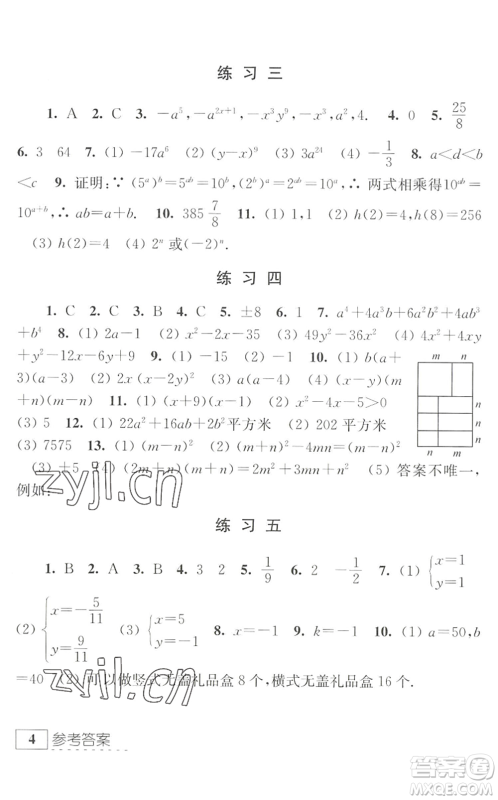 练 习 三
1. A 2. C 3. $-a^5$, $-a^{2x+1}$, $-x^3y^9$, $-x^3$, $a^2$, 4. 4. 0 5. $\frac{25}{8}$
6. 3 64 7. (1) $-17a^6$ (2) $(y-x)^9$ (3) $3a^{24}$ (4) $-\frac{1}{3}$ 8. $a<d<b$
$<c$ 9. 证明:∵ $(5^a)^b=5^{ab}=10^b$, $(2^b)^a=2^{ab}=10^a$, ∴ 两式相乘得$10^{ab}=$
$10^{a+b}$, ∴ $ab=a+b$. 10. 385 $\frac{7}{8}$ 11. (1) 1,1 (2) $h(4)=6$, $h(8)=256$
(3) $h(2)=4$ (4) $2^n$ 或$(-2)^n$.
练 习 四
1. C 2. C 3. B 4. C 5. ±8 6. 1 7. $a^4+4a^3b+6a^2b^2+4ab^3$
$+b^4$ 8. (1) $2a-1$ (2) $x^2-x-2$ (3) $49y^2-36x^2$ (4) $4x^2-4xy$
$+y^2-12x+6y+9$ 9. (1) −15 (2) −1 10. (1) $b(a+$
$b)(a-3)$ (2) $2x(x-2y)^2$ (3) $a(a-4)$ (4) $(3m$
$+n)(m+3n)$ 11. (1) $(x+9)(x-1)$ (2) $x^2-4x-5>0$
(3) 5 12. (1) $22a^2+16ab+2b^2$平方米 (2) 202平方米
(3) 7575 13. (1) $(m-n)^2$ (2) $(m+n)^2-4mn=(m-n)^2$
(3) ±5 (4) $(2m+n)(m+n)=2m^2+3mn+n^2$ (5) 答案不唯一,
例如:
m n
m n
练 习 五
1. B 2. A 3. B 4. 3 2 5. $\frac{1}{9}$ 6. 2 $-\frac{1}{2}$ 7. (1) $\begin{cases}x=1\\y=1\end{cases}$
(2) $\begin{cases}x=-\frac{5}{11}\\y=\frac{9}{11}\end{cases}$ (3) $\begin{cases}x=5\\y=-1\end{cases}$ 8. $x=-1$ 9. $k=-1$ 10. (1) $a=50$, $b$
$=40$ (2) 可以做竖式无盖礼品盒8个,横式无盖礼品盒16个.
4 参考答案
zyjl.cn
zyjl.cn
答案圈
MXQE.COM